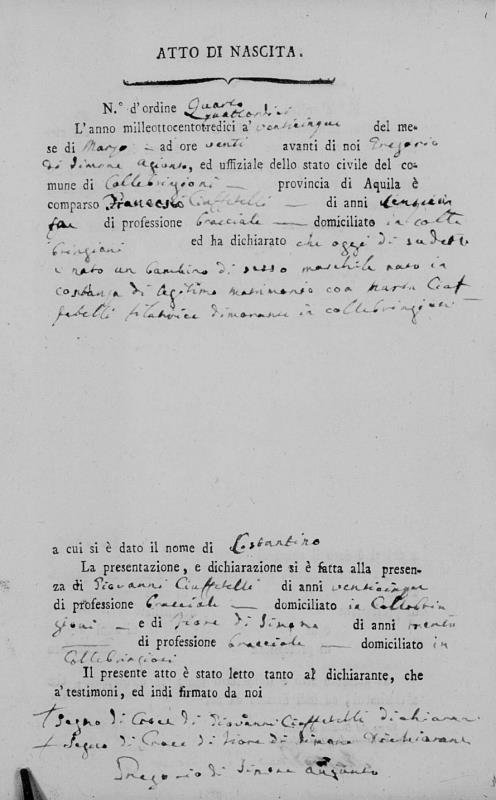 ATTO DI NASCITA.
N.° d'ordine Quarto
quattordici
L'anno milleottocentotredici a' venticinque del me-
se di Marzo ad ore venti avanti di noi Gregorio
di Simone Aggiunto, ed uffiziale dello stato civile del co-
mune di Collebrincioni provincia di Aquila è
comparso Francesco Ciaffetelli di anni
di professione bracciale domiciliato in Colle
brincioni ed ha dichiarato che oggi di sudetto
è nato un bambino di sesso maschile nato in
costanza di legitimo matrimonio con Maria Ciaf
fetelli filatrice dimorante in collebringioni
a cui si è dato il nome di Costantino
La presentazione, e dichiarazione si è fatta alla presen-
za di Giovanni Ciaffetelli di anni venticinque
di professione bracciale domiciliato in Collebrin
gioni e di Fiore di Simone di anni trenta
di professione bracciale domiciliato in
Collebringioni
Il presente atto è stato letto tanto al dichiarante, che
a' testimoni, ed indi firmato da noi
+ Segno di Croce di Giovanni Ciaffetelli dichiaran
+ Segno di Croce di Fiore di Simone Dichiarante
Gregorio di Simone aggiunto